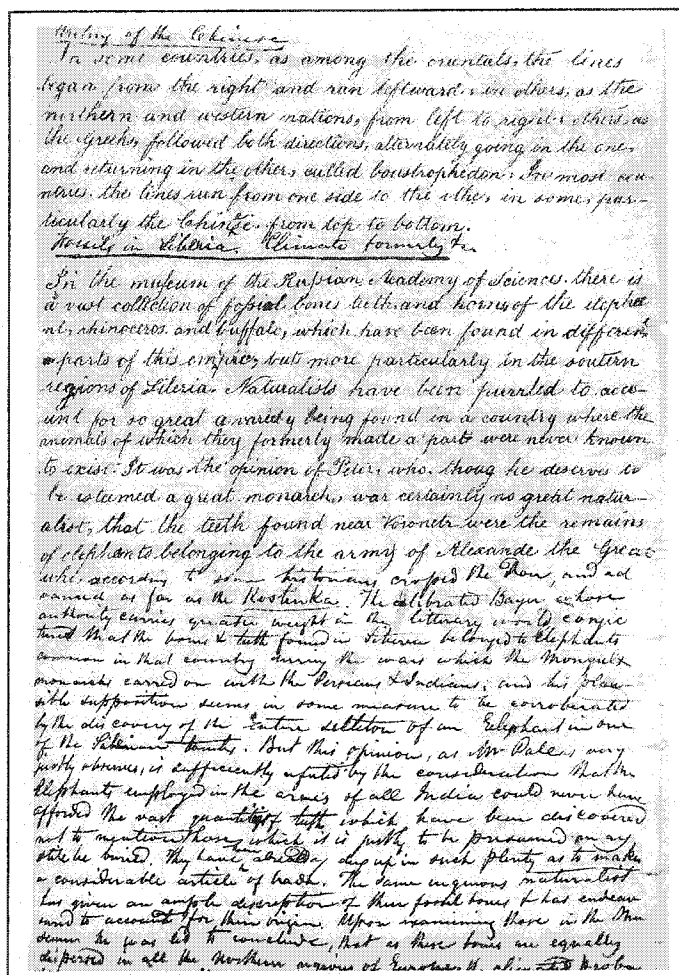 History of the Chinese
In some countries, as among the orientals, the lines
began from the right and ran leftward; in others, as the
northern and western nations, from left to right; others, as
the Greeks, followed both directions, alternately going in the one,
and returning in the other, called boustrophedon. In most cou-
ntries, the lines run from one side to the other, in some, par-
ticularly the Chinese, from top to bottom.
Fossils in Siberia. Climate formerly &c
In the museum of the Russian Academy of Sciences there is
a vast collection of fossial bones teeth and horns, of the elepha
nt, rhinoceros, and buffalo, which have been found in different
parts of this empire, but more particularly in the soutern
regions of Siberia. Naturalists have been puzzled to acco-
unt for so great a variety being found in a country where the
animals of which they formerly made a part, were never known
to exist. It was the opinion of Peter, who, thoug he deserves to
be esteemed a great monarch, was certainly no great natur-
alist, that the teeth found near Voronetz were the remains
of elephants belonging to the army of Alexande the Great
who, according to some historians, crossed the Don, and ad
vanced as far as the Kostinka. The celebrated Bayer whose
authority carries greater weight in the litterary world conjec
tured that the bones & teeth found in Siberia belonged to Elephants
common in that country during the wars which the Mongul
monarchs carred on with the Persians & Indians; and his plau
sible supposition seems in some measure to be corroberated
by the discovery of the entire skeleton of an Elephant in one
of the Siberian tombs. But this opinion, as Mr Pallas very
justly observes, is sufficiently refuted by the consideration that the
Elephants employed in the armies of all India could never have
afforded the vast quantities of teeth which have been discovered
not to mention those which it is justly to be presumed may
still be buried. They have been already dug up in such plenty as to make
a considerable article of trade. The same ingenious naturalist
has given an ample description of these fossil bones & has endeav
oured to account for their origin. Upon examining those in the Mu
seum he was led to conclude, that as these bones are equally
dispersed in all the Northern regions of Europe,